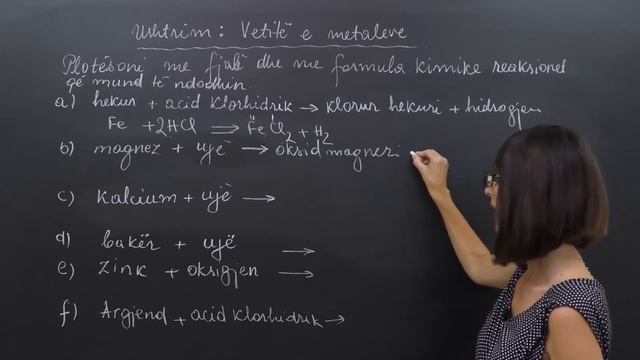 Ushtrim: Vetitë e metaleve
Plotësoni me fjalë dhe me formula kimike reaksionet
që mund të ndodhin.
a) hekur + acid klorhidrik → klorur hekuri + hidrogjen
Fe + 2HCl ⇒ FeCl₂ + H₂
II I
b) magnez + ujë → oksid magnezi
c) kalcium + ujë →
d) bakër + ujë →
e) zink + oksigjen →
f) Argjend + acid klorhidrik →